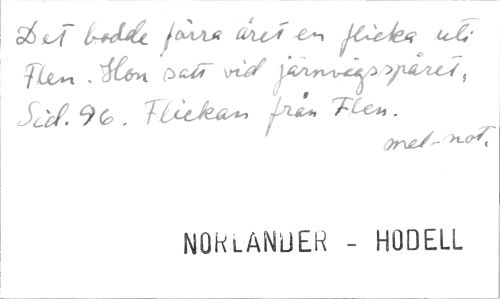 Det bodde förra året en flicka uti
Flen. Hon satt vid järnvägsspåret,
Sid. 96. Flickan från Flen.
mel-not.
NORLANDER - HODELL